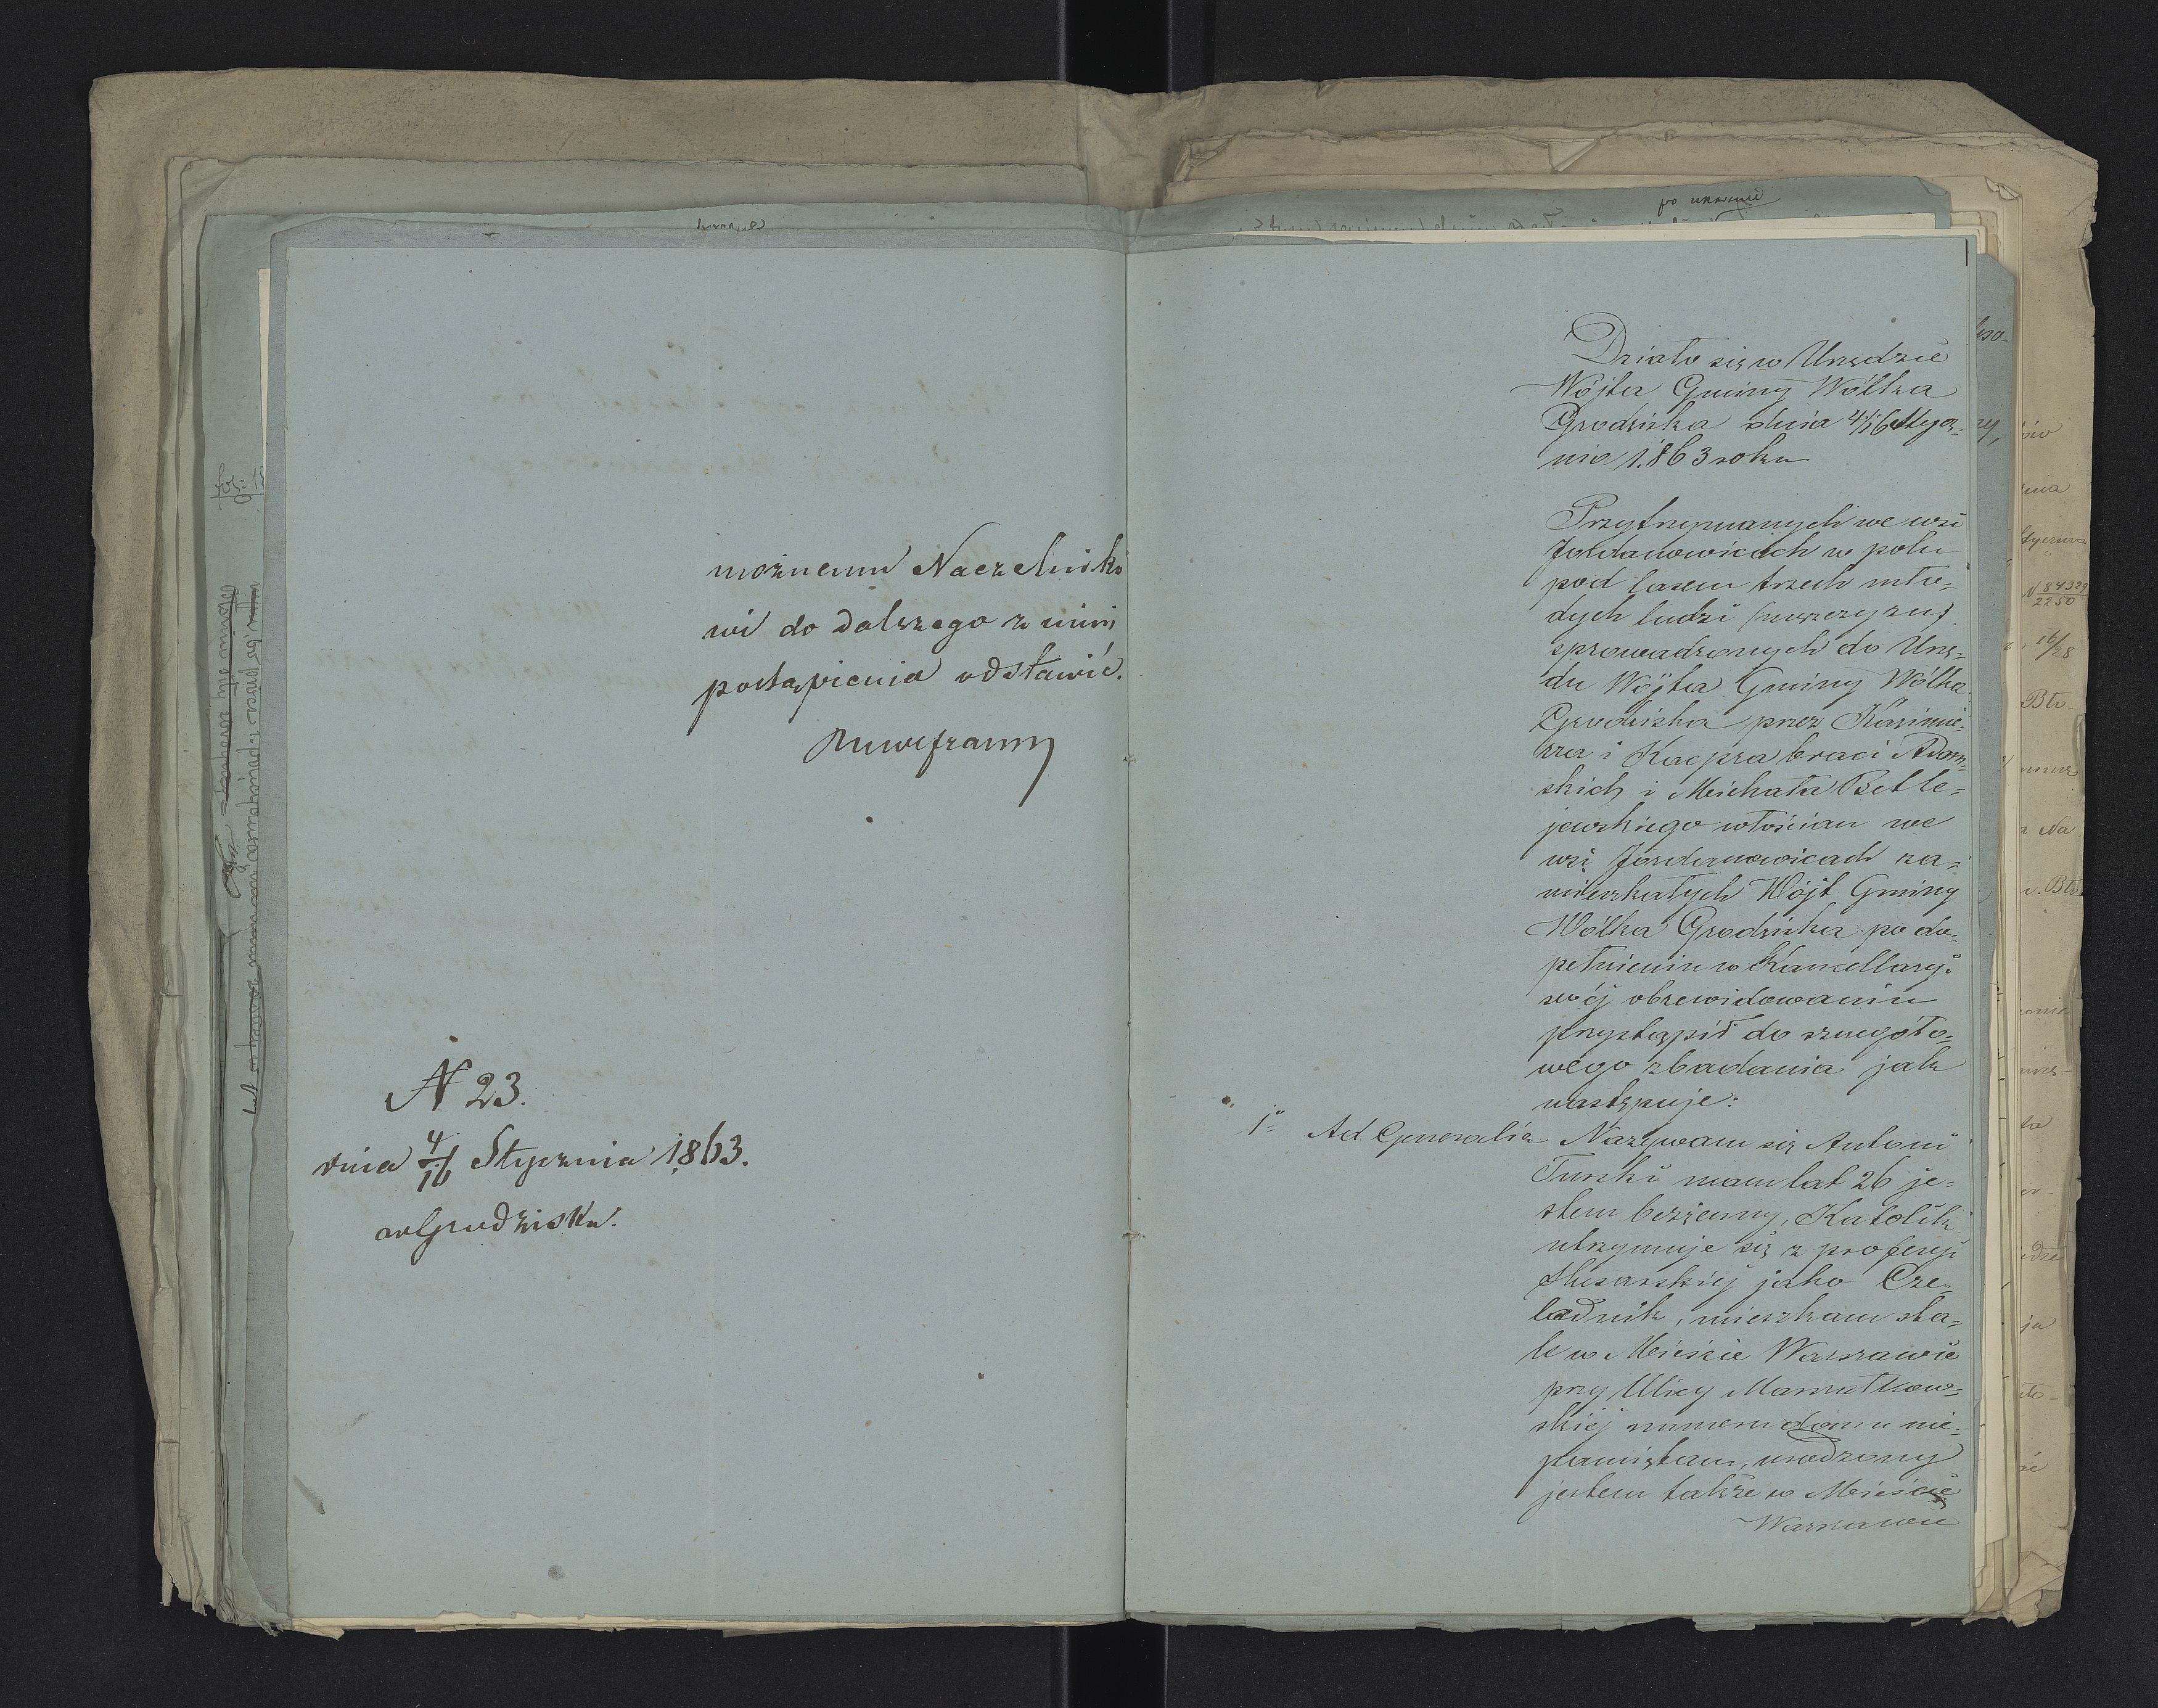 możnemu Naczelniko
wi do dalszego z nimi
postąpienia odstawić.
N 23.
dnia 4/16 Stycznia 1863.
w Grodzisku.
po
Działo się w Urzędzie
Wójta Gminy Wólka
Grodziska dnia 4/16 Stycz=
nia 1863 roku
Przytrzymanych we wsi
Jordanowicach w polu
pod lasem trzech mło=
dych ludzi (mężczyzn)
sprowadzonych do Urzę=
du Wójta Gminy Wólka
Grodziska przez Kazimie=
rza i Kacpra braci Adam=
skich i Michała Betle=
jewskiego włościan we
wsi Jordanowicach za=
mieszkałych Wójt Gminy
Wólka Grodziska po do=
pełnieniu w Kancellaryi
swéj obrewidowaniu
przystąpił do szczegóło=
wego zbadania jak
następuje:
1o Ad Generalia Nazywam się Antoni
Turski mam lat 26 je=
stem bezżenny, Katolik
utrzymuje się z profesyi
Ślusarskiéj jako Cze=
ladnik, mieszkam sta=
le w Mieście Warszawie
przy Ulicy Marszałkow=
skiéj numeru domu nie=
pamiętam, urodzony
jestem także w Mieście
Warszawie
N 84329/2250
16/28
Bło-
Na